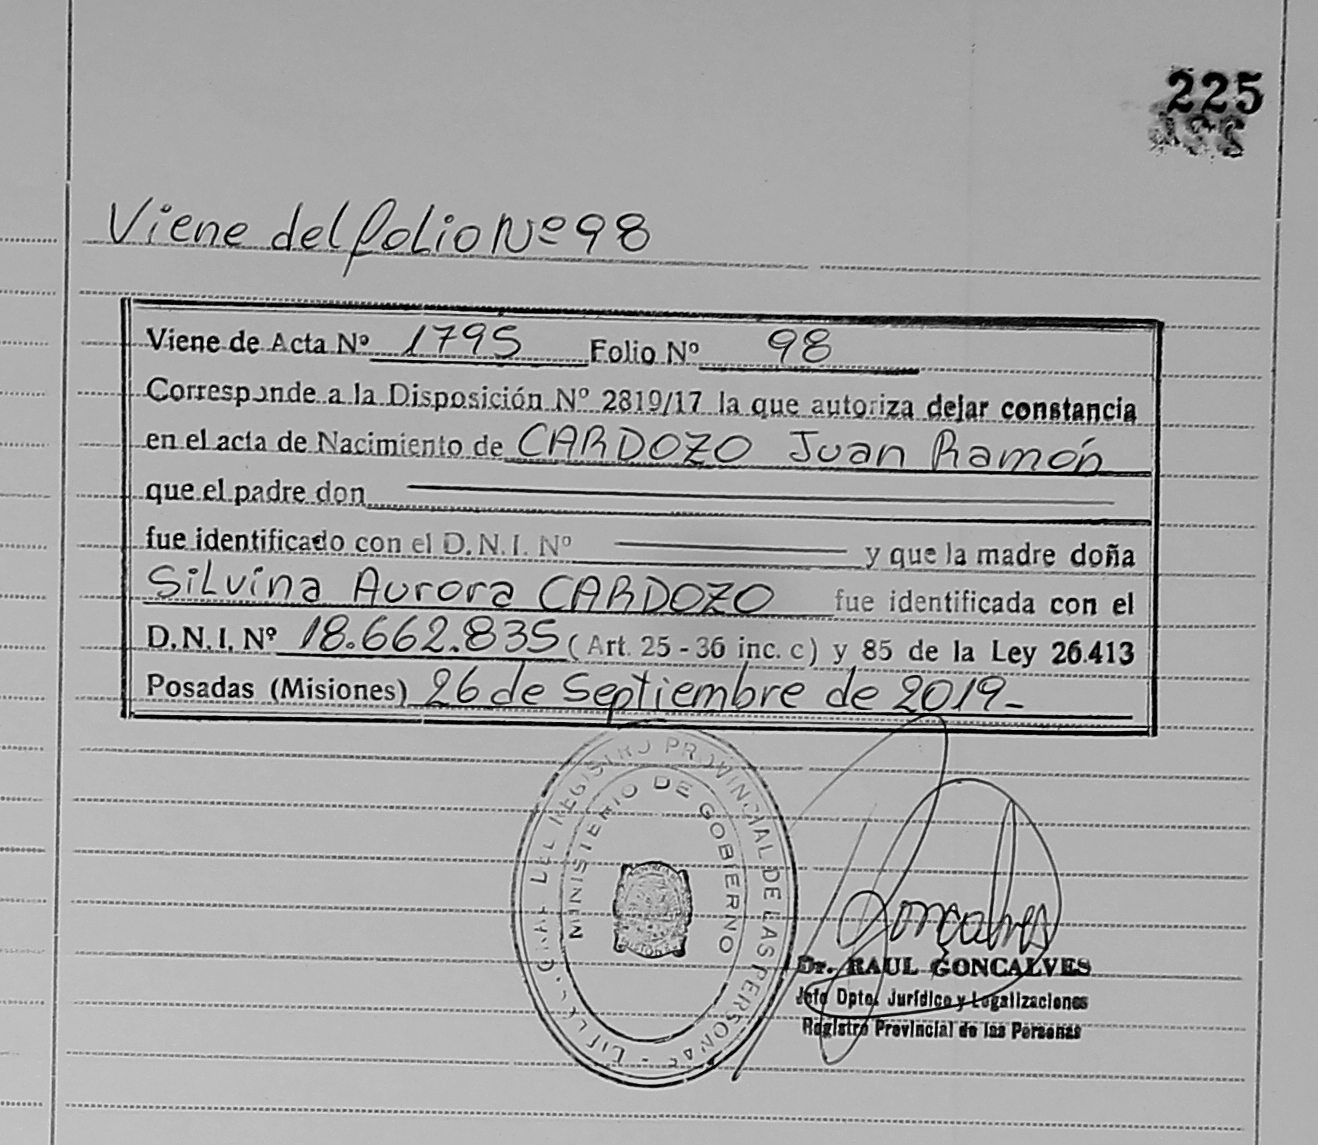 225
Viene del folio Nº 98
Viene de Acta Nº 1795 Folio Nº 98
Corresponde a la Disposición Nº 2819/17 la que autoriza dejar constancia
en el acta de Nacimiento de CARDOZO Juan Ramón
que el padre don
fue identificado con el D.N.I. Nº y que la madre doña
Silvina Aurora CARDOZO fue identificada con el
D.N.I. Nº 18.662.835 (Art. 25 - 36 inc. c) y 85 de la Ley 26.413
Posadas (Misiones) 26 de Septiembre de 2019-
REGISTRO PROVINCIAL DE LAS PERSONAS
MINISTERIO DE GOBIERNO
Goncalves
Dr. RAUL GONCALVES
Jefe Dpto. Jurídico y Legalizaciones
Registro Provincial de las Personas